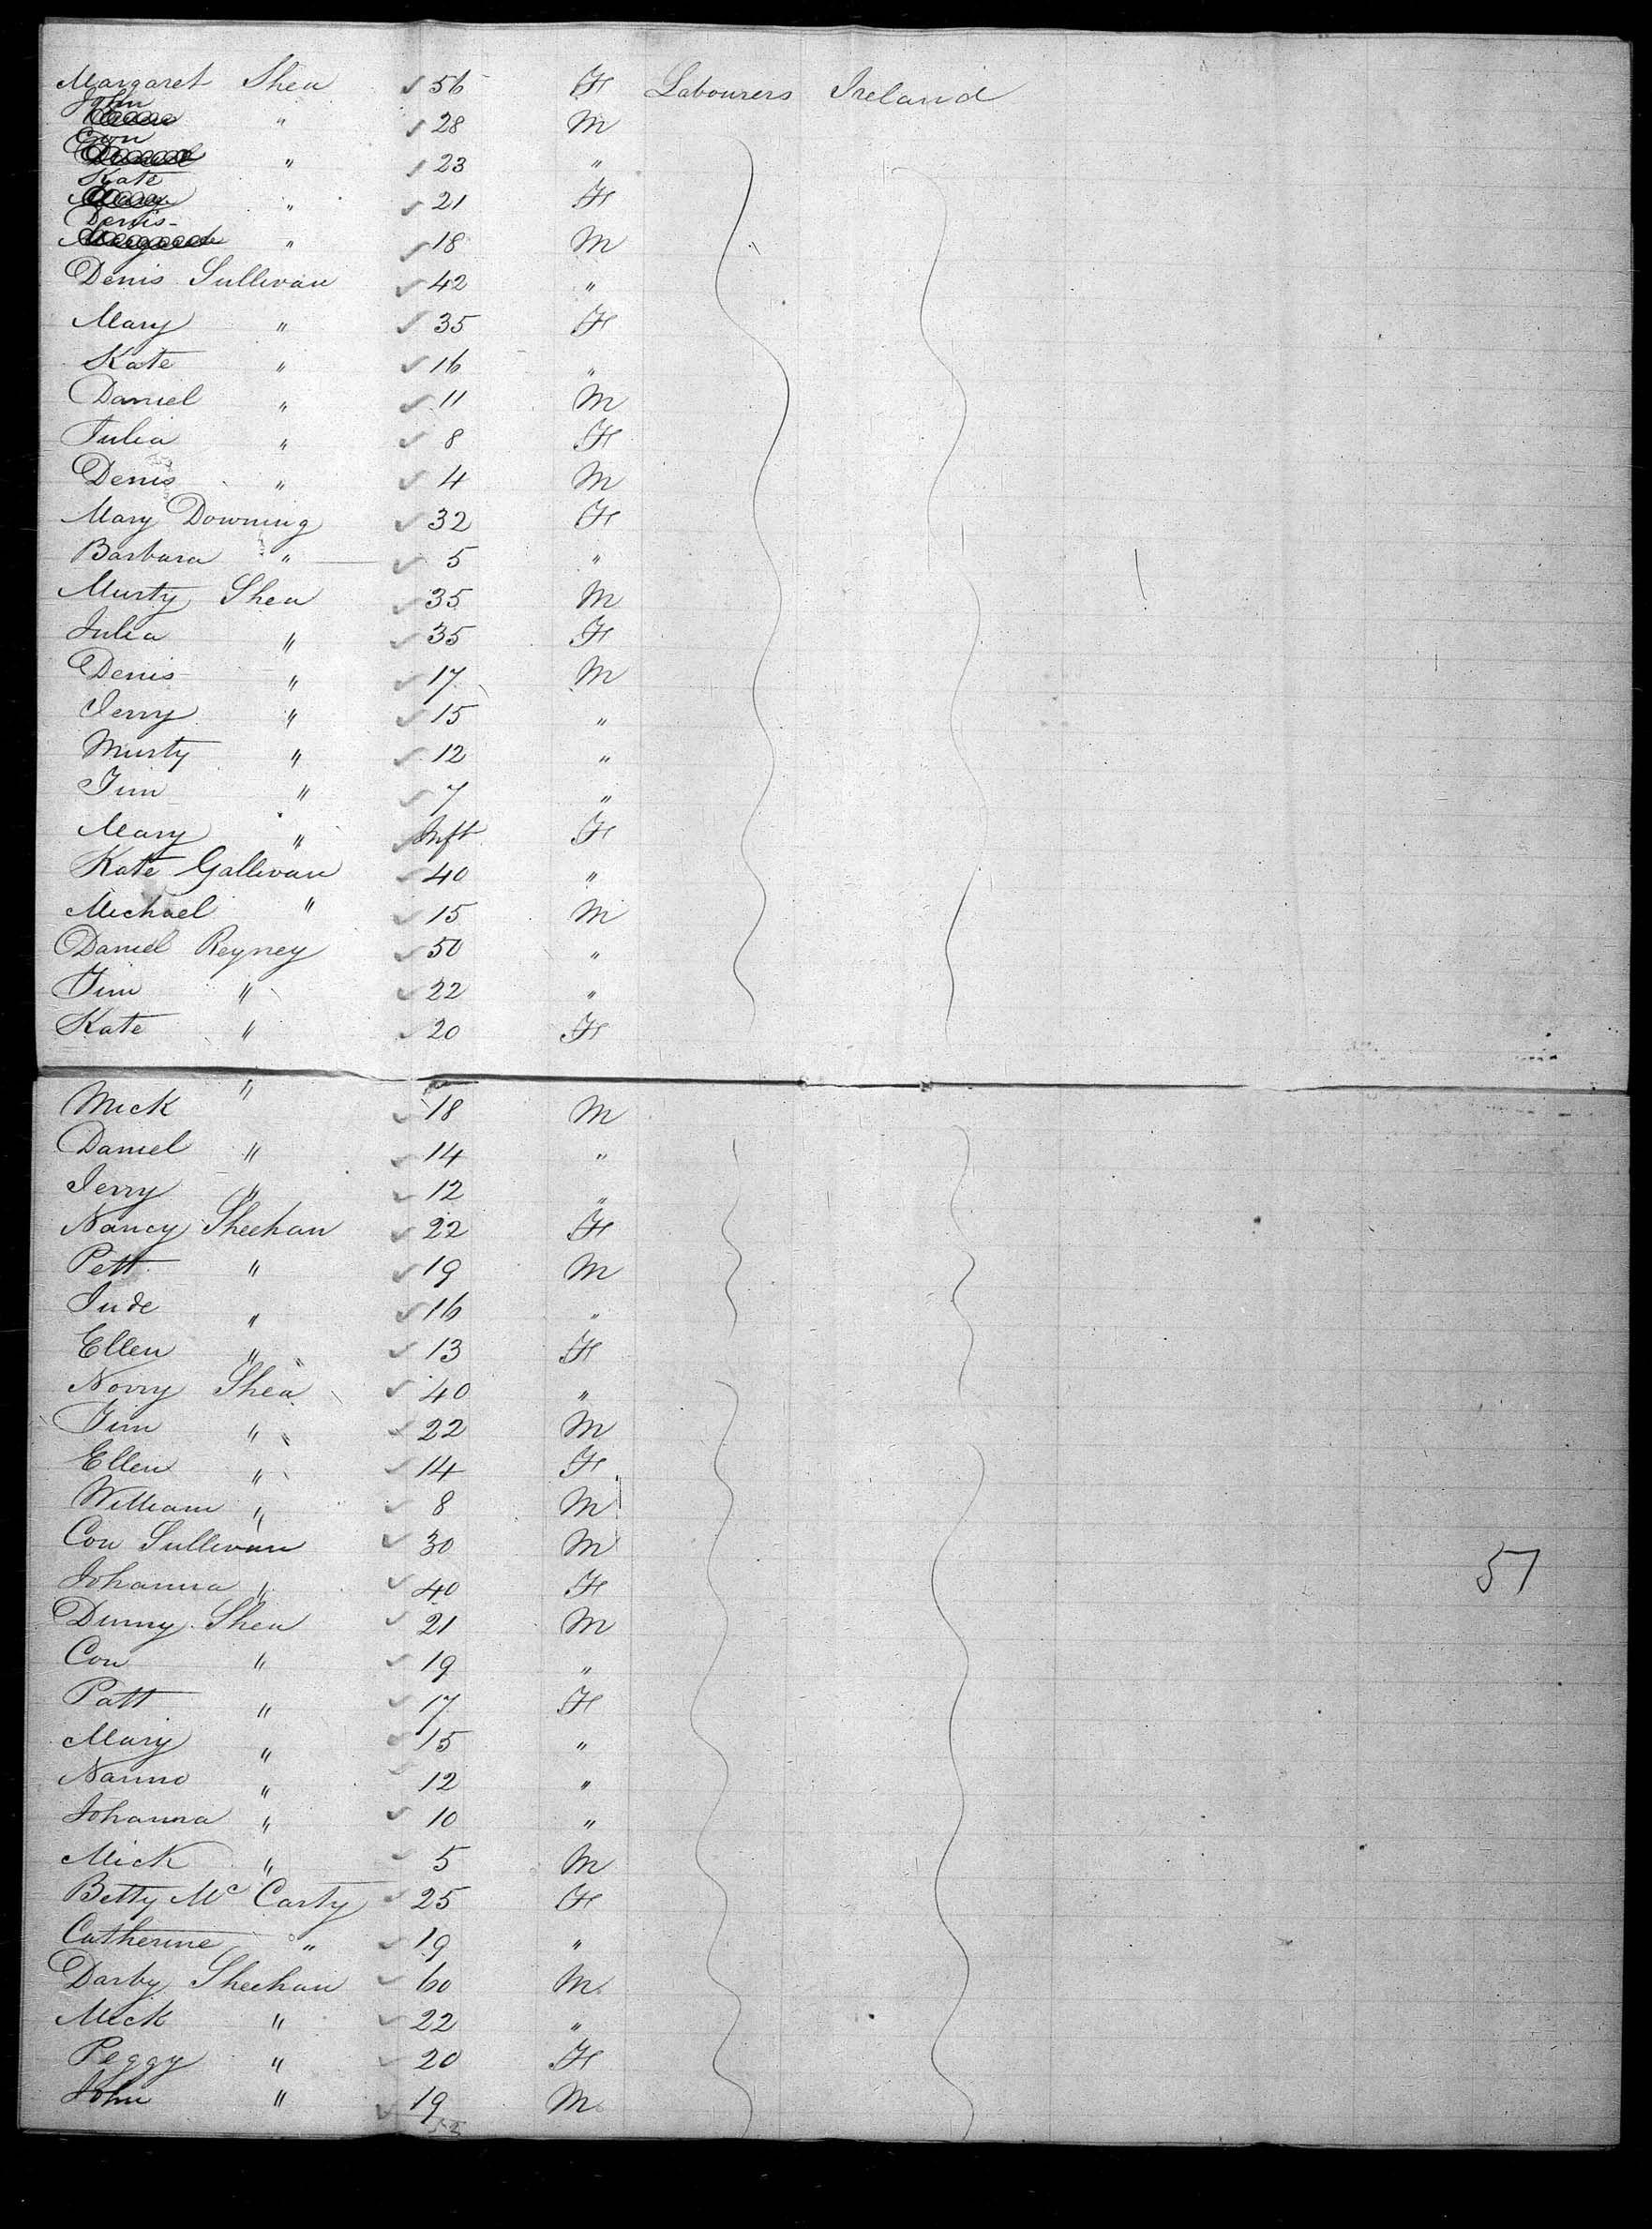 Margaret Shea 56 F Labourers Ireland
John " 28 M
Con " 23 "
Kate " 21 F
Denis " 18 M
Denis Sullivan 42 "
Mary " 35 F
Kate " 16 "
Daniel " 11 M
Julia " 8 F
Denis " 4 M
Mary Downing 32 F
Barbara " 5 "
Murty Shea 35 M
Julia " 35 F
Denis " 17 M
Jerry " 15 "
Murty " 12 "
Tim " 7 "
Mary " Inft F
Kate Gallivan 40 "
Michael " 15 M
Daniel Reyney 50 "
Tim " 22 "
Kate " 20 F
Mick " 18 M
Daniel " 14 "
Jerry " 12 "
Nancy Sheehan 22 F
Patt " 19 M
Jude " 16 "
Ellen " 13 F
Norry Shea 40 "
Tim " 22 M
Ellen " 14 F
William " 8 M
Con Sullivan 30 M
Johanna " 40 F
51
Dunny Shea 21 M
Con " 19 "
Patt " 17 F
Mary " 15 "
Nanno " 12 "
Johanna " 10 "
Mick " 5 M
Betty Mc Carty 25 F
Catherine " 19 "
Darby Sheehan 60 M
Mick " 22 "
Peggy " 20 F
John " 19 M